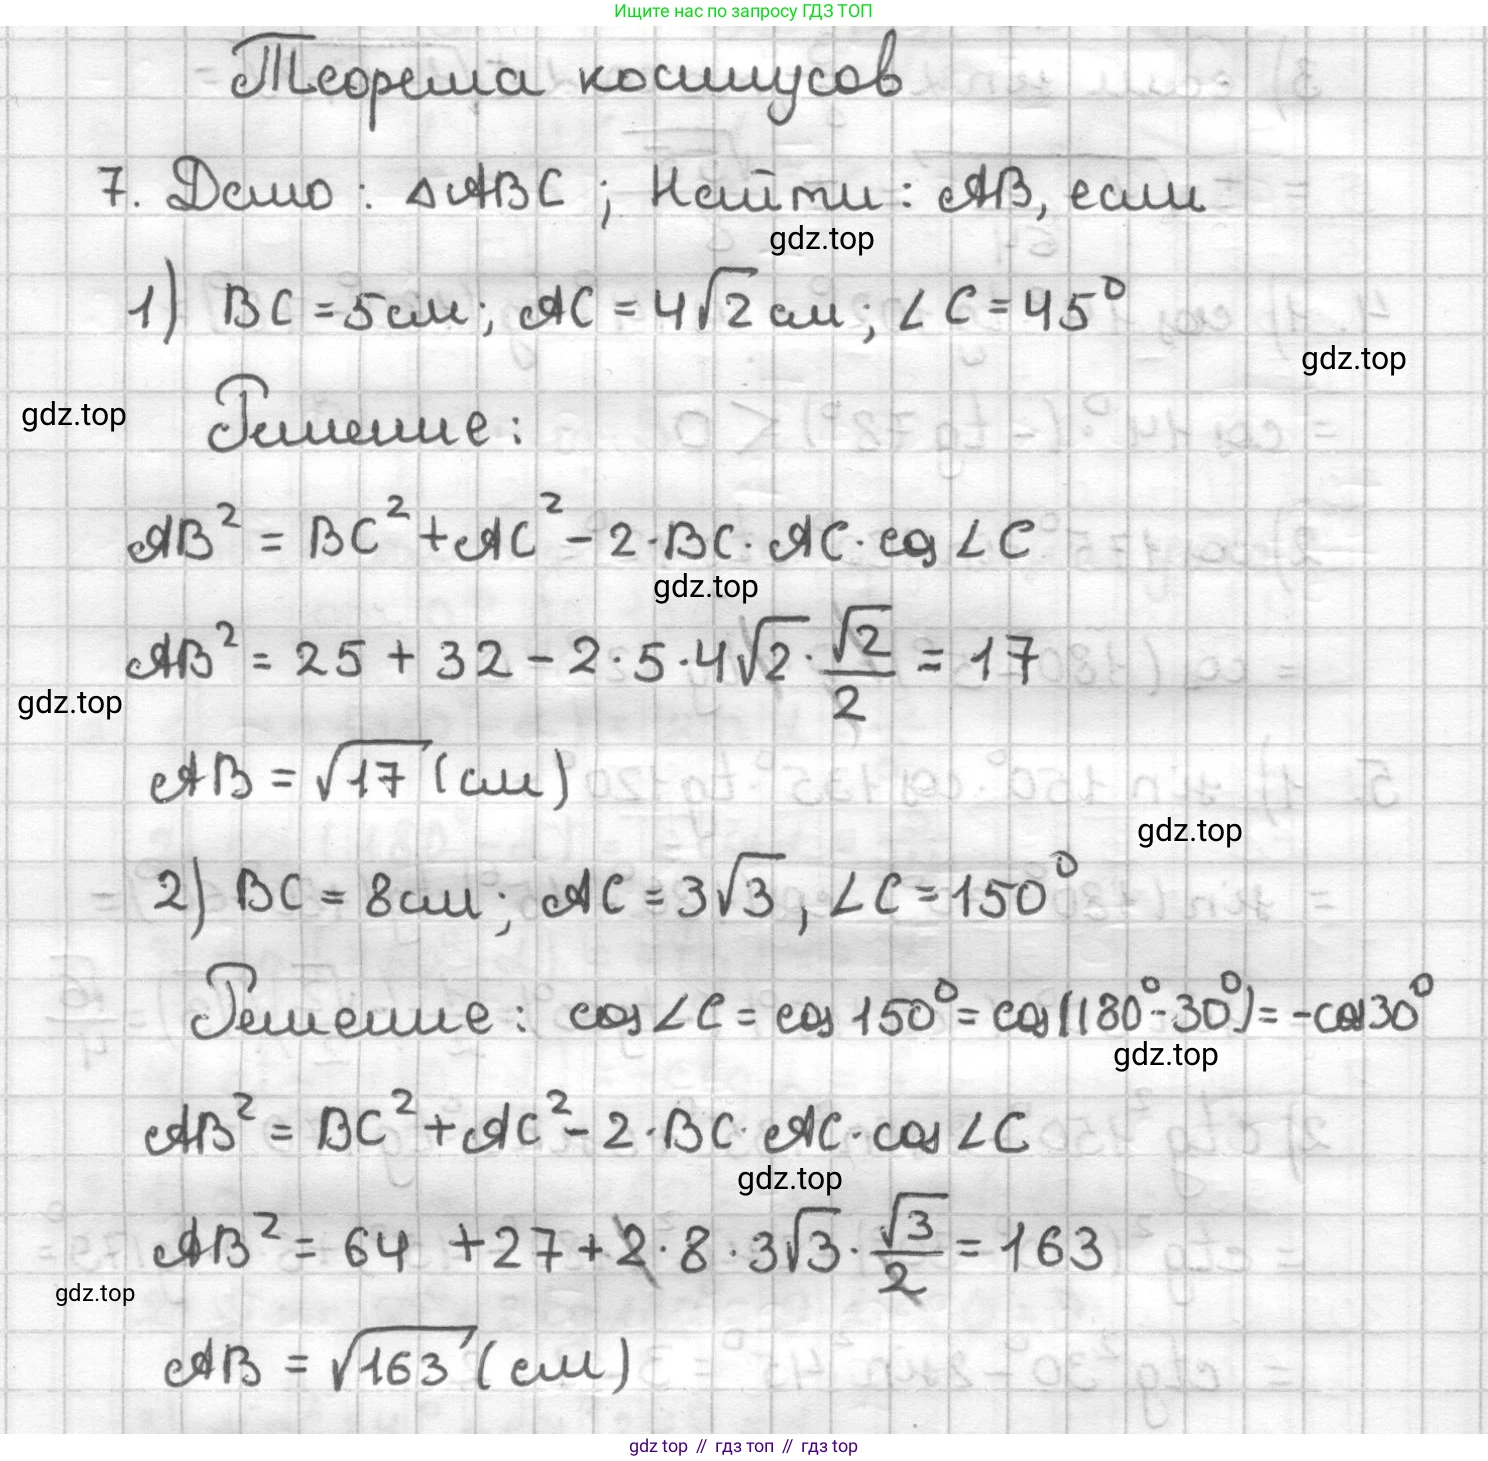 Ищите нас по запросу ГДЗ ТОП
Теорема косинусов
7. Дано: △ABC; Найти: AB, если
gdz.top
1) BC = 5 см; AC = 4√2 см; ∠C = 45°
gdz.top
gdz.top
Решение:
AB² = BC² + AC² - 2·BC·AC·cos∠C
gdz.top
AB² = 25 + 32 - 2·5·4√2·√2/2 = 17
gdz.top
AB = √17 (см)
gdz.top
2) BC = 8 см; AC = 3√3, ∠C = 150°
Решение: cos∠C = cos 150° = cos(180° - 30°) = -cos30°
gdz.top
AB² = BC² + AC² - 2·BC·AC·cos∠C
gdz.top
AB² = 64 + 27 + 2·8·3√3·√3/2 = 163
gdz.top
AB = √163 (см)
gdz top // гдз топ // gdz top